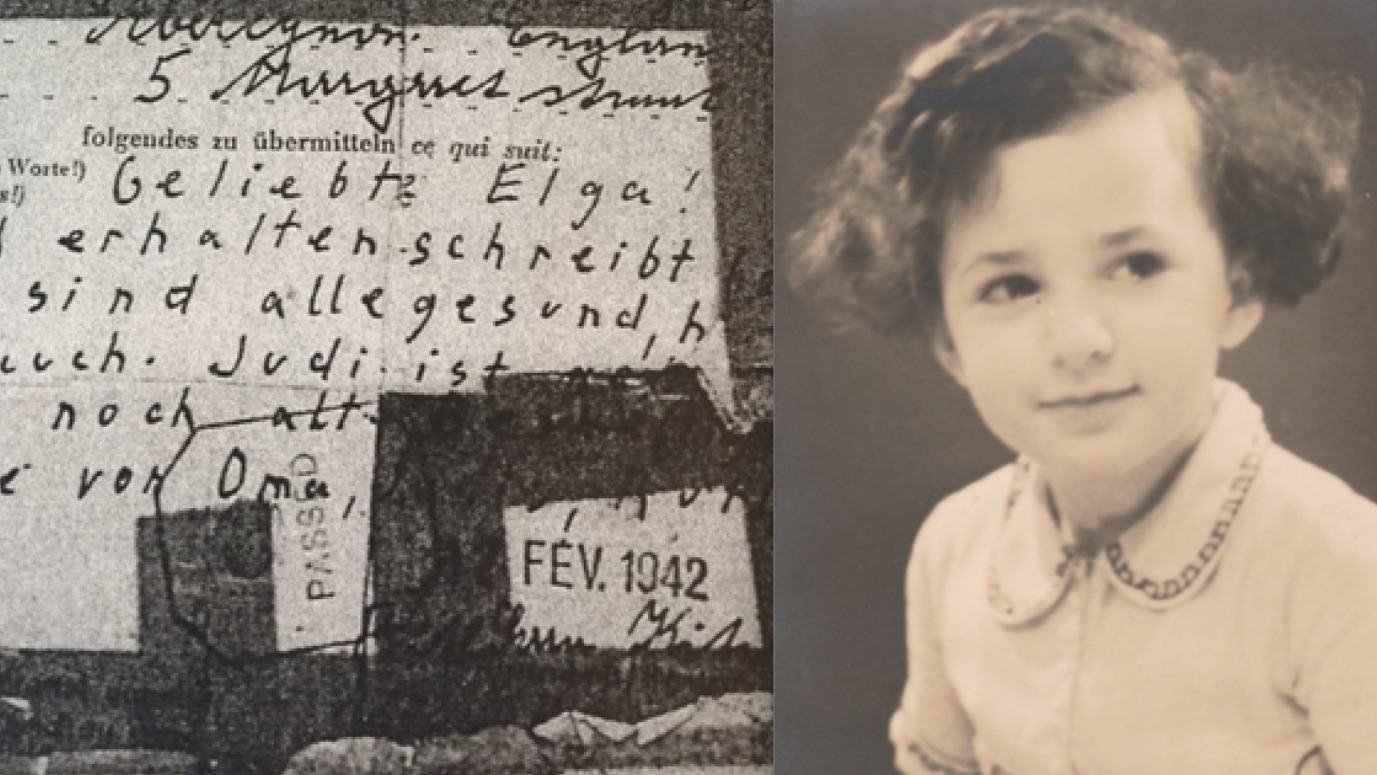 5 Margaret
folgendes zu übermitteln ce qui suit:
Worte!) Geliebte Elga!
s!)
erhalten schreibt
sind alle gesund, h
uch. Judi ist
noch alt
von Oma,
PASSED
FÉV. 1942